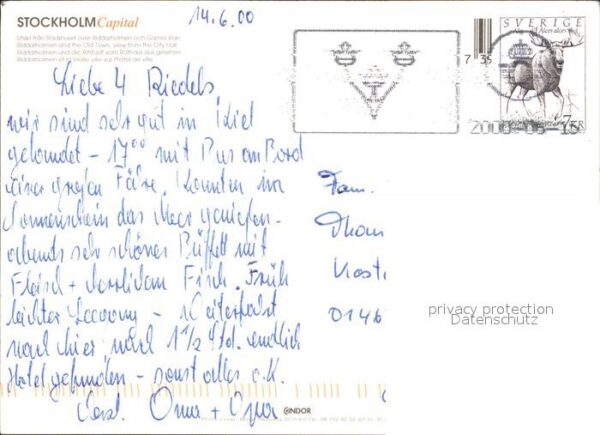 STOCKHOLM Capital
Utsikt från Stadshuset över Riddarholmen och Gamla Stan
Riddarholmen and the Old Town, view from the City Hall
Riddarholmen und die Altstadt vom Rathaus aus gesehen
Riddarholmen et la Vieille Ville vue
14.6.00
SVERIGE
Älg
2000-06-15
Liebe 4 Riedels,
wir sind sehr gut in Kiel
gelandet – 17⁰⁰ mit Bus an Bord
einer großen Fähre. Konnten im
Sonnenschein das Meer genießen -
abends sehr schönes Büffett mit
Fleisch + herrlichem Fisch. Früh
leichter Seegang – Weiterfahrt
nach hier nach 1 1/2 Std. endlich
Hotel gefunden – sonst alles o.k.
Herzl. Oma + Opa
Fam.
Thom
privacy protection
Datenschutz